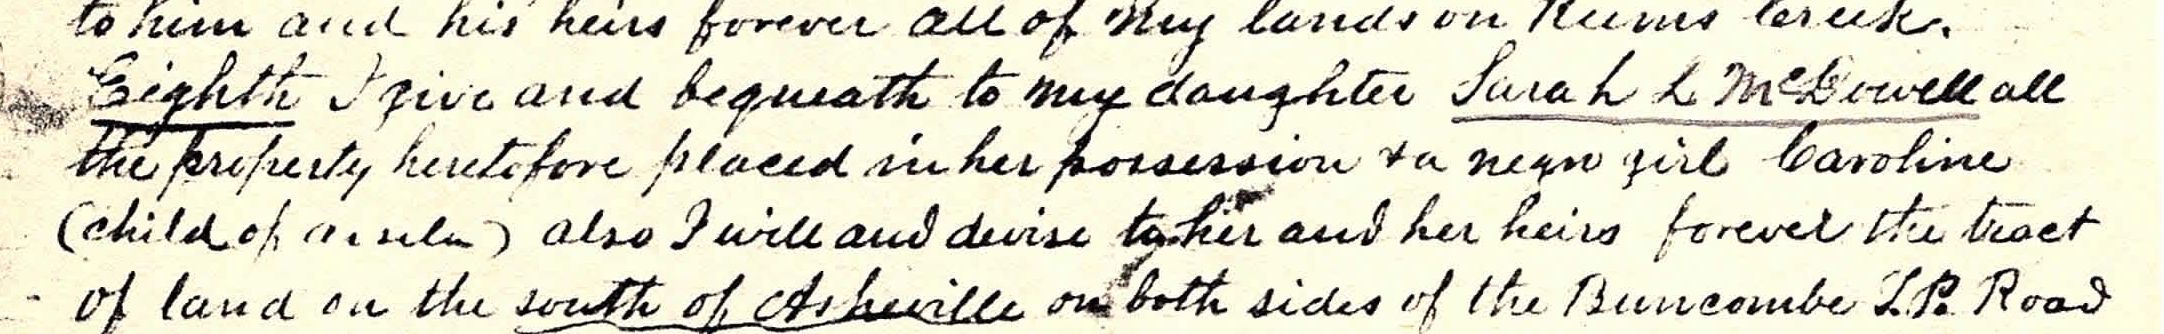 to him and his heirs forever all of my lands on Reems Creek.
Eighth I give and bequeath to my daughter Sarah L McDowell all
the property heretofore placed in her possession & a negro girl Caroline
(child of ) also I will and devise to her and her heirs forever the tract
of land on the south of Asheville on both sides of the Buncombe T.P. Road